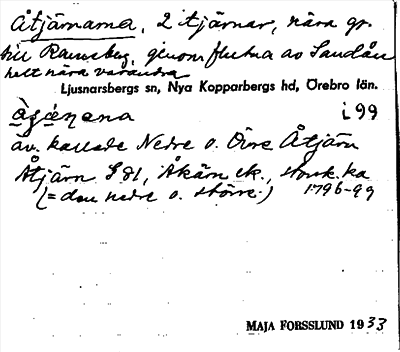 Åtjärnarna, 2 tjärnar, nära gr.
till Ramsberg, genomflutna av Sandån
helt nära varandra
Ljusnarsbergs sn, Nya Kopparbergs hd, Örebro län.
i 99
äv. kallade Nedre o. Övre Åtjärn
Åtjärn S 81, Åkärn ek., stork.ka
(= den nedre o. större.) 1796-99
MAJA FORSSLUND 1933